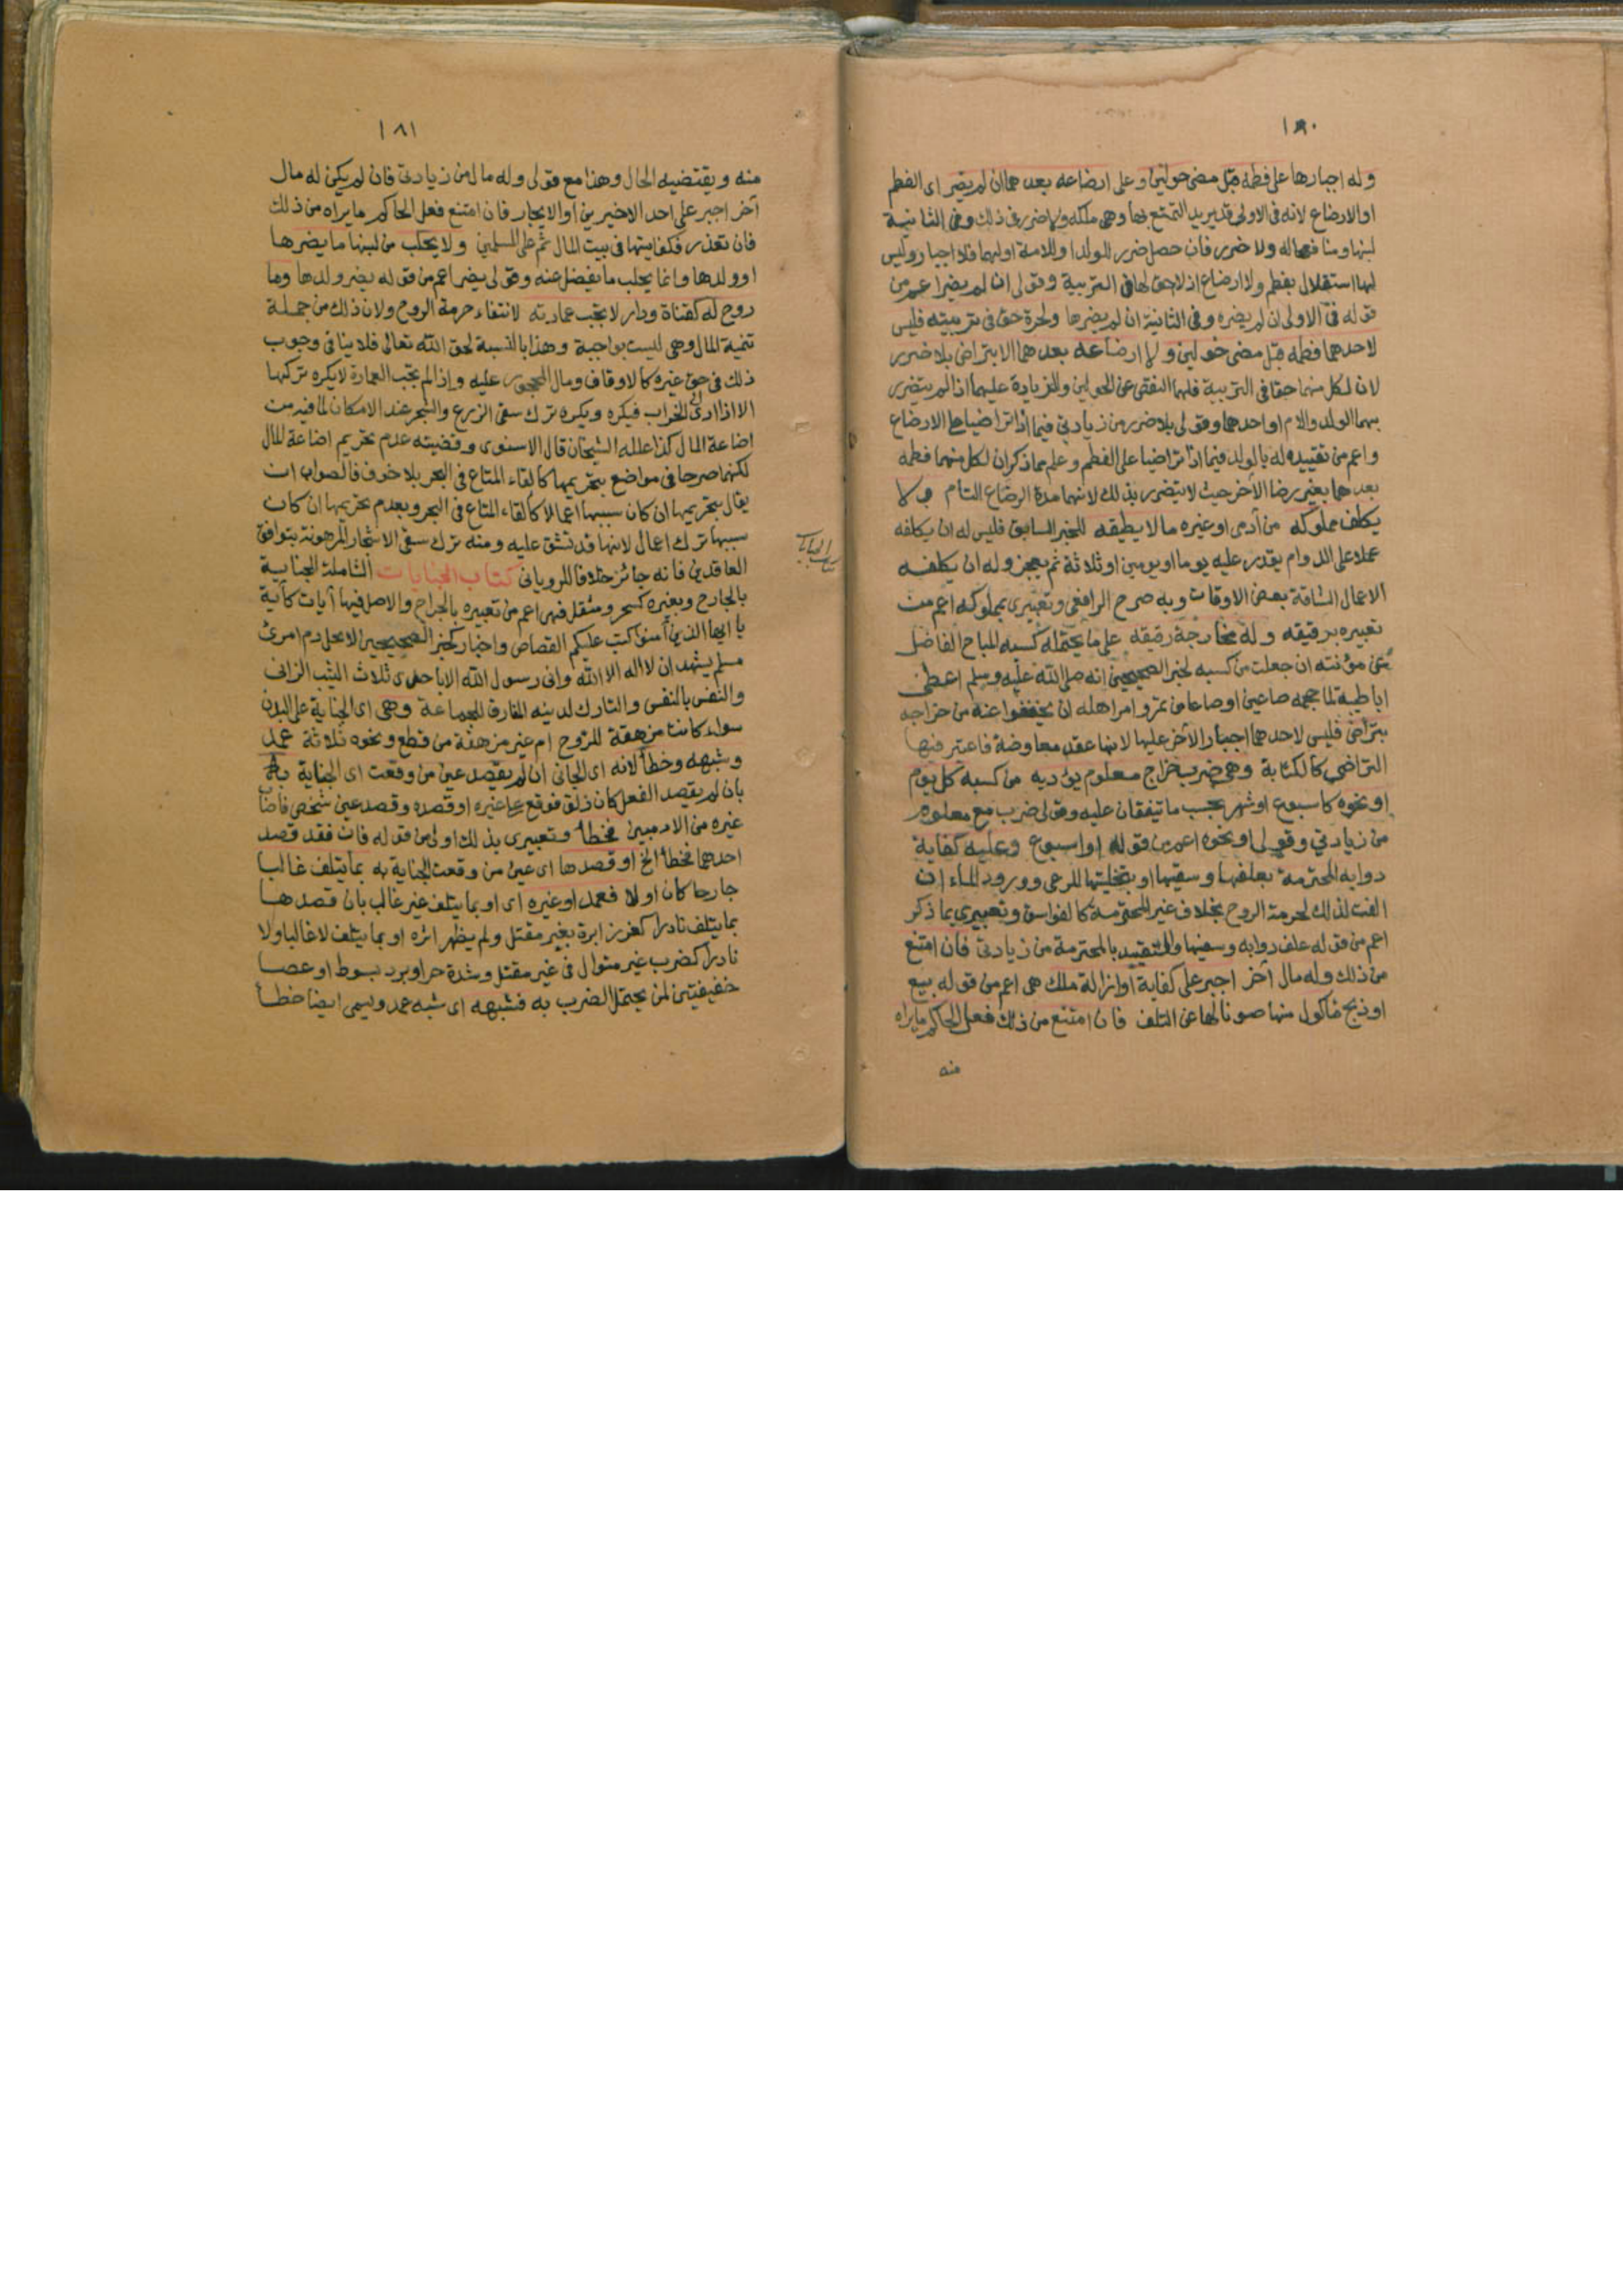 ١٨٠
وله اجبارها على فطمه قبل مضى حولين وعلى ارضاعه بعدهما ان لم يضر اى الفطم
او الارضاع لانه فى الاولى قد يريد التمتع بها وهى ملكه ولا ضرر فى ذلك وفى الثانية
لبنها ومنافعها له ولا ضرر فان حصل ضرر للولد او للامة او لهما فلا اجبار وليس
لها استقلال بفطم ولا ارضاع اذ لا حق لها فى التربية وقولى ان لم يضر اعم من
قوله فى الاولى ان لم يضره وفى الثانية ان لم يضرها ولحرة حق فى تربيته فليس
لاحدهما فطمه قبل مضى حولين ولا ارضاعه بعدهما الا بتراض بلا ضرر
لان لكل منهما حقا فى التربية فلهما النقص عن الحولين والزيادة عليهما اذا لم يتضرر
بهما الولد والام او احدهما وقولى بلا ضرر من زيادتى فيما اذا تراضيا على الارضاع
واعم من تقييده له بالولد فيما اذا تراضيا على الفطم وعلم مما ذكر ان لكل منهما فطمه
بعدهما بغير رضا الآخر حيث لا يتضرر بذلك لانهما مدة الرضاع التام ولا
يكلف مملوكه من آدمى او غيره ما لا يطيقه للخبر السابق فليس له ان يكلفه
عملا على الدوام يقدر عليه يوما او يومين او ثلاثة ثم يعجز وله ان يكلفه
الاعمال الشاقة بعض الاوقات وبه صرح الرافعى وتعبيرى بمملوكه اعم من
تعبيره برقيقه وله مخارجة رقيقه على ما يحتمله كسبه المباح الفاضل
عن مؤنته ان جعلت من كسبه لخبر الصحيحين انه صلى الله عليه وسلم اعطى
ابا طيبة لما حجمه صاعين او صاعا من تمر وامر اهله ان يخففوا عنه من خراجه
بتراض فليس لاحدهما اجبار الآخر عليها لانها عقد معاوضة فاعتبر فيها
التراضى كالكتابة وهى ضرب خراج معلوم يؤديه من كسبه كل يوم
او نحوه كاسبوع او شهر بحسب ما يتفقان عليه وقولى ضرب مع معلوم
من زيادتي وقولى او نحوه اعم من قوله او اسبوع وعليه كفاية
دوابه المحترمة بعلفها وسقيها او بتخليتها للرعى وورود الماء ان
الفت لذلك لحرمة الروح بخلاف غير المحترمة كالفواسق وتعبيرى بما ذكر
اعم من قوله علف دوابه وسقيها والتقييد بالمحترمة من زيادتى فان امتنع
من ذلك وله مال آخر اجبر على كفاية او ازالة ملك هى اعم من قوله بيع
او ذبح مأكول منها صونا لها عن التلف فان امتنع من ذلك فعل الحاكم ما يراه
منه
١٨١
منه ويقتضيه الحال وهذا مع قولى وله مال من زيادتى فان لم يكن له مال
آخر اجبر على احد الاخيرين او الايجار فان امتنع فعل الحاكم ما يراه من ذلك
فان تعذر فكفايتها فى بيت المال ثم على المسلمين ولا يحلب من لبنها ما يضرها
او ولدها وانما يحلب ما يفضل عنه وقولى يضر اعم من قوله يضر ولدها وما
روح له كقناة ودار لا تجب عمارته لانتفاء حرمة الروح ولان ذلك من جملة
تنمية المال وهى ليست بواجبة وهذا بالنسبة لحق الله تعالى فلا ينافى وجوب
ذلك فى حق غيره كالاوقاف ومال المحجور عليه واذا لم تجب العمارة لا يكره تركها
الا اذا ادى الى الخراب فيكره ويكره ترك سقى الزرع والشجر عند الامكان لما فيه من
اضاعة المال كذا علله الشيخان قال الاسنوى وقضيته عدم تحريم اضاعة المال
لكنهما صرحا فى مواضع بتحريمها كالقاء المتاع فى البحر بلا خوف فالصواب ان
يقال بتحريمها ان كان سببها اعمالا كالقاء المتاع فى البحر وبعدم تحريمها ان كان
سببها ترك اعمال لانها قد تشق عليه ومنه ترك سقى الاشجار المرهونة بتوافق
العاقدين فانه جائز خلافا للرويانى كتاب الجنايات الشاملة للجناية
كتاب الجنايات
بالجارح وبغيره كسحر ومثقل فهى اعم من تعبيره بالجراح والاصل فيها آيات كآية
يا ايها الذين آمنوا كتب عليكم القصاص واخبار كخبر الصحيحين لا يحل دم امرئ
مسلم يشهد ان لا اله الا الله وانى رسول الله الا باحدى ثلاث الثيب الزانى
والنفس بالنفس والتارك لدينه المفارق للجماعة وهى اى الجناية على البدن
سواء كانت مزهقة للروح ام غير مزهقة من قطع ونحوه ثلاثة عمد
وشبهه وخطأ لانه اى الجانى ان لم يقصد عين من وقعت اى الجناية به
بان لم يقصد الفعل كان زلق فوقع على غيره او قصده وقصد عين شخص فاصاب
غيره من الادميين فخطأ وتعبيرى بذلك اولى من قوله فان فقد قصد
احدهما فخطأ الخ او قصدها اى عين من وقعت الجناية به بما يتلف غالبا
جارحا كان او لا فعمد او غيره اى او بما يتلف غير غالب بان قصدها
بما يتلف نادرا كغرز ابرة بغير مقتل ولم يظهر اثره او بما يتلف لا غالبا ولا
نادرا كضرب غير متوال فى غير مقتل وشدة حر او برد بسوط او عصا
خفيفتين لمن يحتمل الضرب به فشبهه اى شبه عمد ويسمى ايضا خطأ